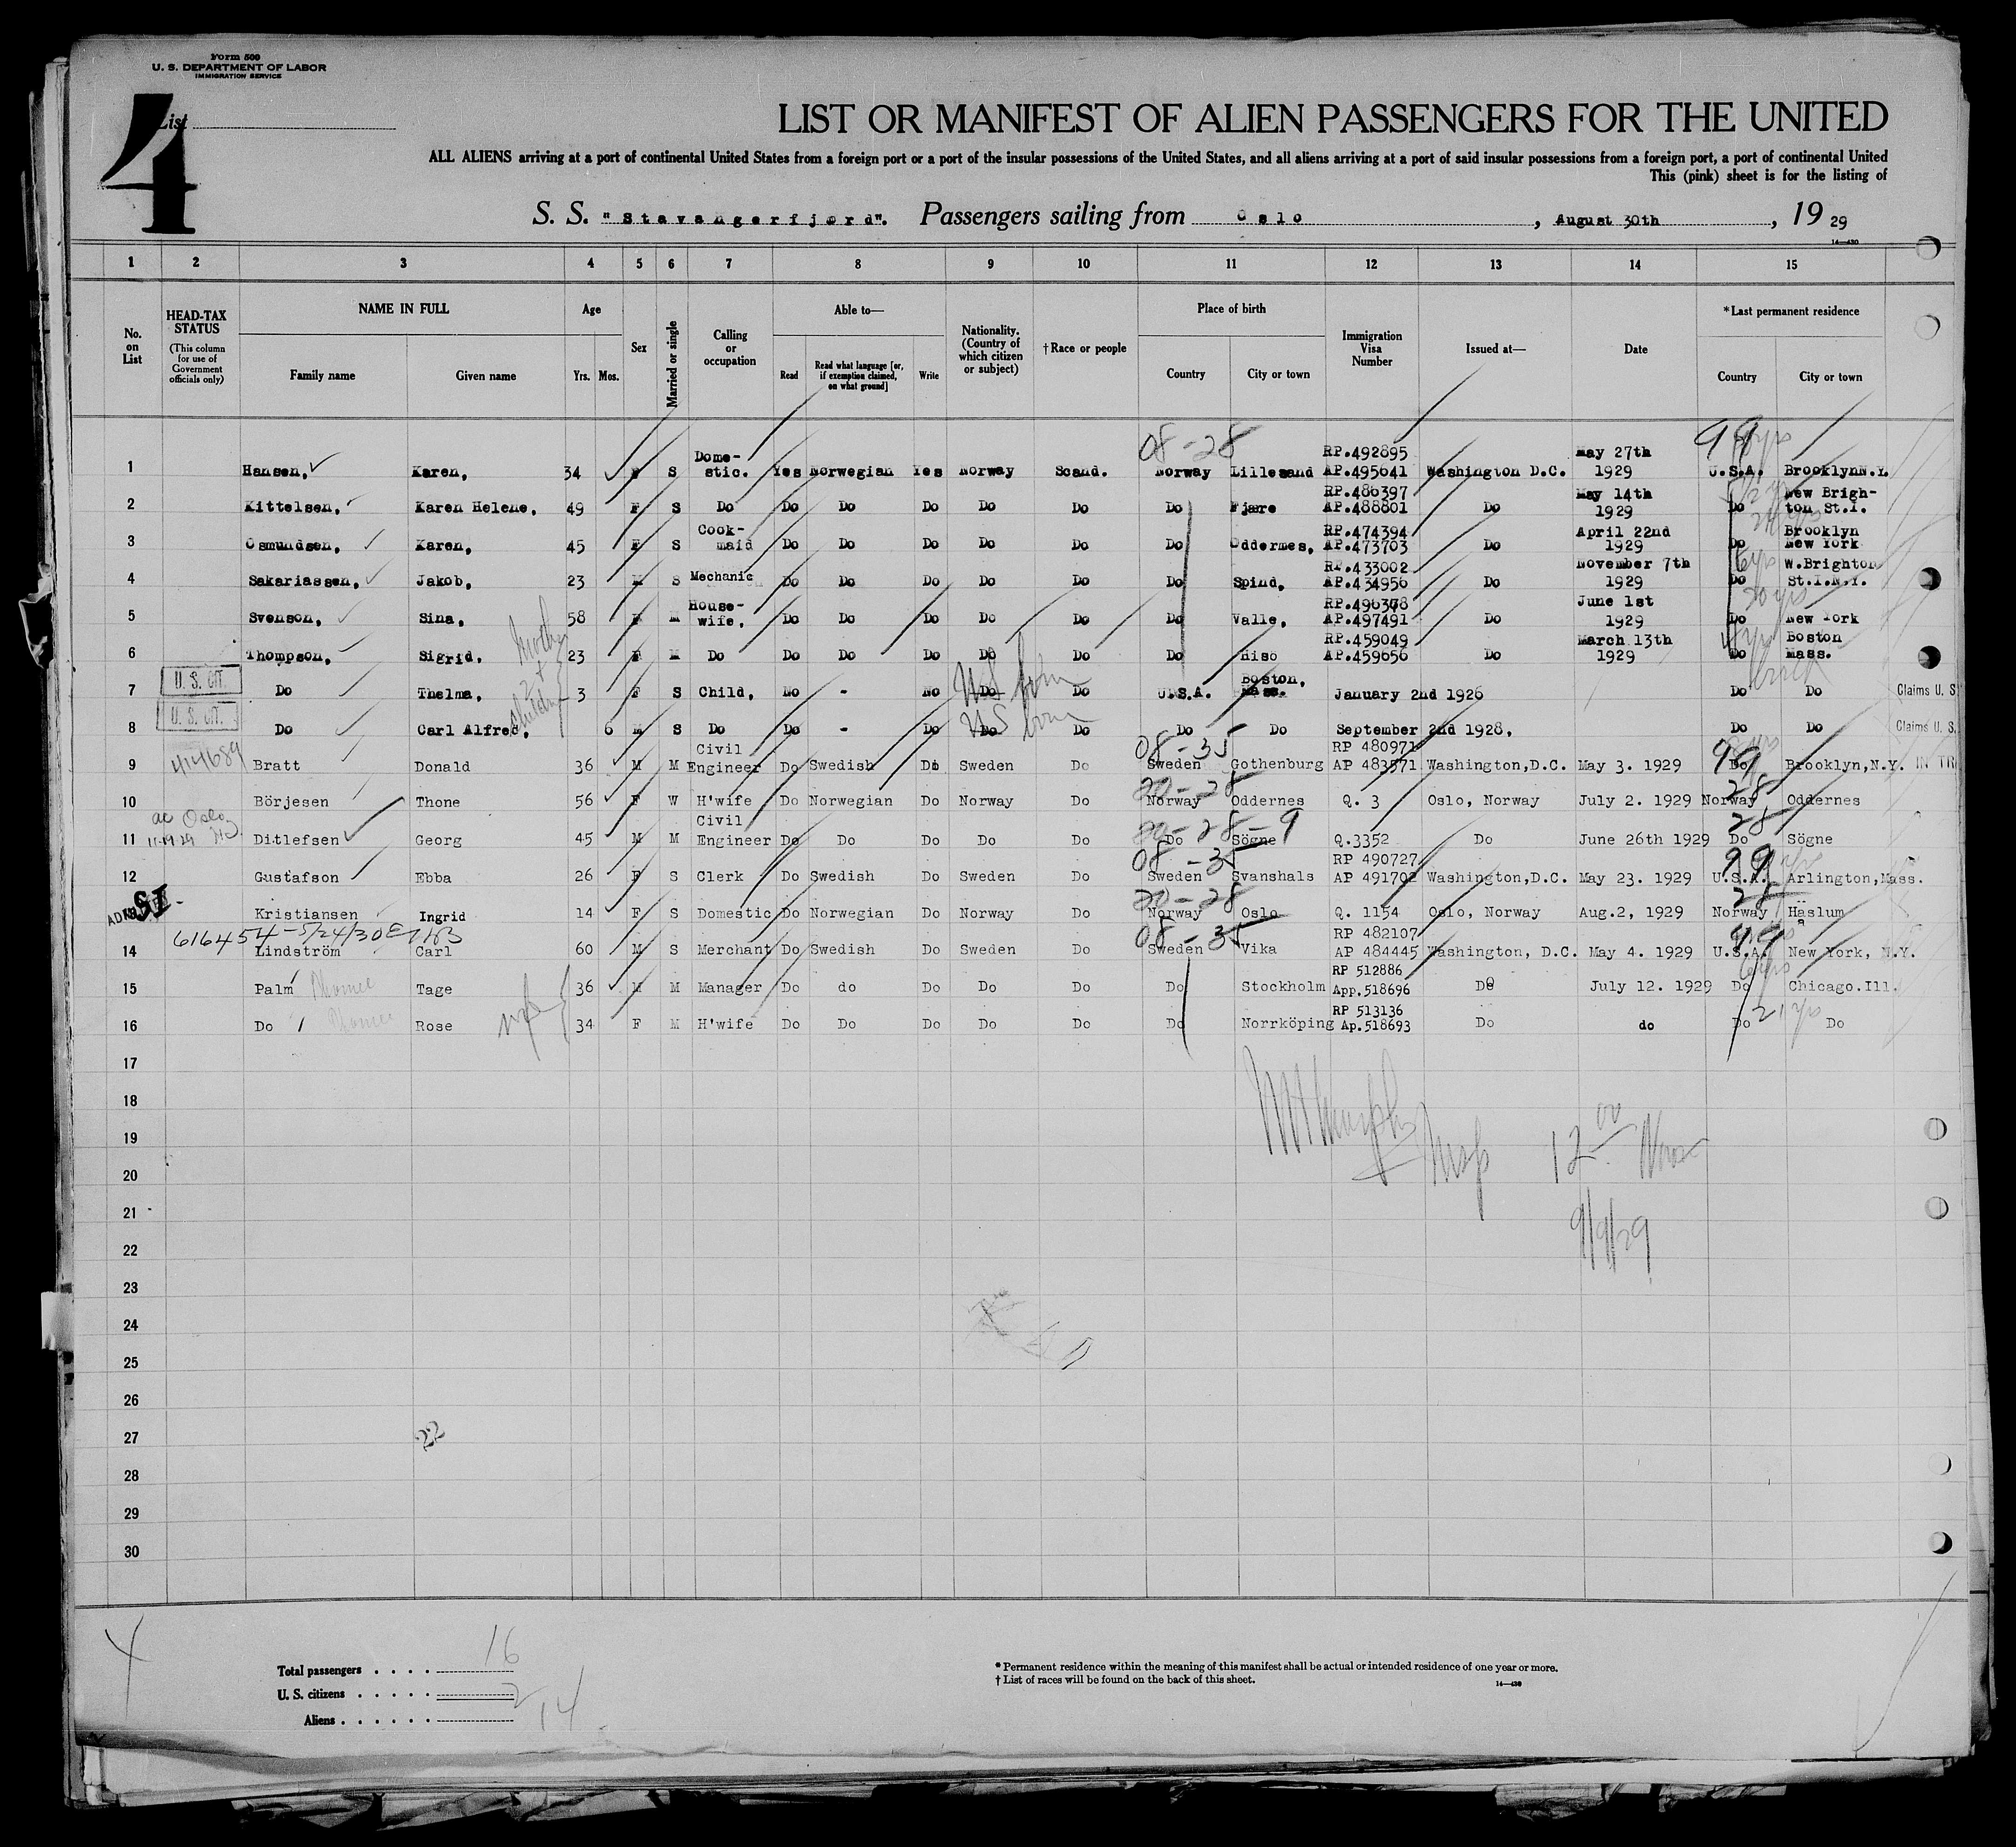 Form 500
U. S. DEPARTMENT OF LABOR
IMMIGRATION SERVICE
List
4
LIST OR MANIFEST OF ALIEN PASSENGERS FOR THE UNITED
ALL ALIENS arriving at a port of continental United States from a foreign port or a port of the insular possessions of the United States, and all aliens arriving at a port of said insular possessions from a foreign port, a port of continental United
This (pink) sheet is for the listing of
S. S. "Stavangerfjord". Passengers sailing from Oslo, August 30th, 19 29
14—430
1 2 3 4 5 6 7 8 9 10 11 12 13 14 15
No. on List
HEAD-TAX STATUS (This column for use of Government officials only)
NAME IN FULL
Family name Given name
Age
Yrs. Mos.
Sex
Married or single
Calling or occupation
Able to—
Read Read what language [or, if exemption claimed, on what ground] Write
Nationality. (Country of which citizen or subject)
†Race or people
Place of birth
Country City or town
Immigration Visa Number
Issued at—
Date
*Last permanent residence
Country City or town
08-28 99
1 Hansen, Karen, 34 F S Dome-stic. Yes Norwegian Yes Norway Scand. Norway Lillesand RP.492895 AP.495641 Washington D.C. May 27th 1929 U.S.A. Brooklyn N.Y.
2 Kittelsen, Karen Helene, 49 F S Do Do Do Do Do Do Do Fjære RP.486397 AP.488801 Do May 14th 1929 Do New Brigh-ton St.I.
3 Osmundsen, Karen, 45 F S Cook-maid Do Do Do Do Do Do Oddernes, RP.474394 AP.473703 Do April 22nd 1929 Do Brooklyn New York
4 Sakariassen, Jakob, 23 M S Mechanic Do Do Do Do Do Do Spind, RP.433002 AP.434956 Do November 7th 1929 Do W.Brighton St.I.N.Y.
5 Svenson, Sina, 58 F M House-wife, Do Do Do Do Do Do Valle, RP.496378 AP.497491 Do June 1st 1929 Do New York
6 Thompson, Sigrid, 23 F M Do Do Do Do Do Do Do Hisö RP.459049 AP.459656 Do March 13th 1929 Do Boston Mass.
Mother + 2 children
7 U. S. CIT. Do Thelma, 3 F S Child, No - No Do US born Do U.S.A. Boston, Mass. January 2nd 1926 Do Do Claims U. S
8 U. S. CIT. Do Carl Alfred, 6 M S Do Do - Do Do US born Do Do Do September 2nd 1928, Do Do Claims U. S.
08-35 99
9 414689 Bratt Donald 36 M M Civil Engineer Do Swedish Do Sweden Do Sweden Gothenburg RP 480971 AP 483571 Washington,D.C. May 3. 1929 Do Brooklyn,N.Y. IN TR
20-28 28
10 Börjesen Thone 56 F W H'wife Do Norwegian Do Norway Do Norway Oddernes Q. 3 Oslo, Norway July 2. 1929 Norway Oddernes
20-28-9 28
11 Oslo Ditlefsen Georg 45 M M Civil Engineer Do Do Do Do Do Do Sögne Q.3352 Do June 26th 1929 Do Sögne
08-35 99
12 Gustafson Ebba 26 F S Clerk Do Swedish Do Sweden Do Sweden Svanshals RP 490727 AP 491702 Washington,D.C. May 23. 1929 U.S.A. Arlington,Mass.
20-28 28
SI Kristiansen Ingrid 14 F S Domestic Do Norwegian Do Norway Do Norway Oslo Q. 1154 Oslo, Norway Aug.2, 1929 Norway Haslum
616454-5/24/30 08-35 99
14 Lindström Carl 60 M S Merchant Do Swedish Do Sweden Do Sweden Vika RP 482107 AP 484445 Washington, D.C. May 4. 1929 U.S.A. New York, N.Y.
15 Palm Tage 36 M M Manager Do do Do Do Do Do Stockholm RP 512886 App.518696 Do July 12. 1929 Do Chicago.Ill.
16 Do Rose 34 F M H'wife Do Do Do Do Do Do Norrköping RP 513136 Ap.518693 Do do Do 21 yrs Do
17
18
19
20
21
22
23
24
25
26
27
28
29
30
12 00 Noon
9/9/29
22
Total passengers . . . . 16
U. S. citizens . . . . . 2
Aliens . . . . . . 14
* Permanent residence within the meaning of this manifest shall be actual or intended residence of one year or more.
† List of races will be found on the back of this sheet.
14—430